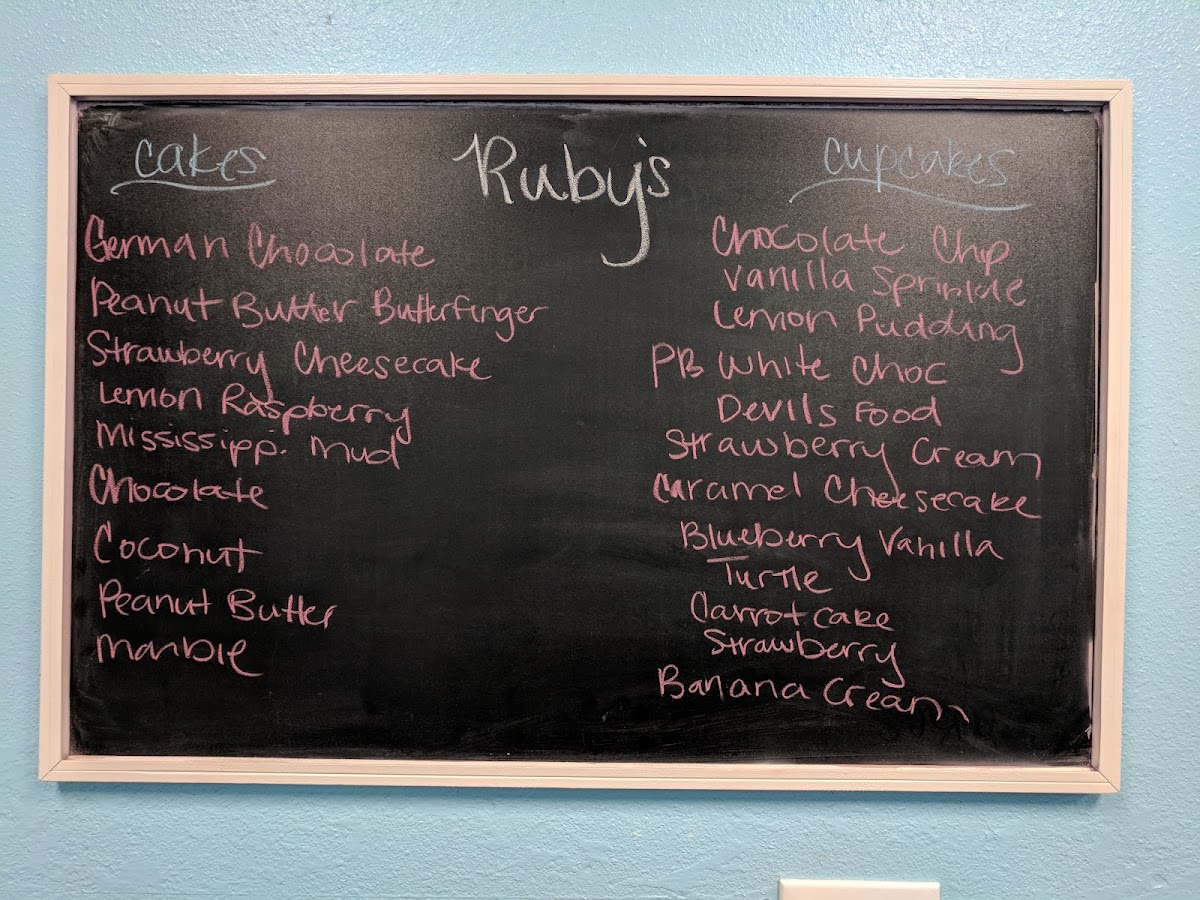 Ruby's
cakes
German Chocolate
Peanut Butter Butterfinger
Strawberry Cheesecake
Lemon Raspberry
Mississippi Mud
Chocolate
Coconut
Peanut Butter
Marble
cupcakes
Chocolate Chip
Vanilla Sprinkle
Lemon Pudding
PB White Choc
Devils Food
Strawberry Cream
Caramel Cheesecake
Blueberry Vanilla
Turtle
Carrot cake
Strawberry
Banana Cream